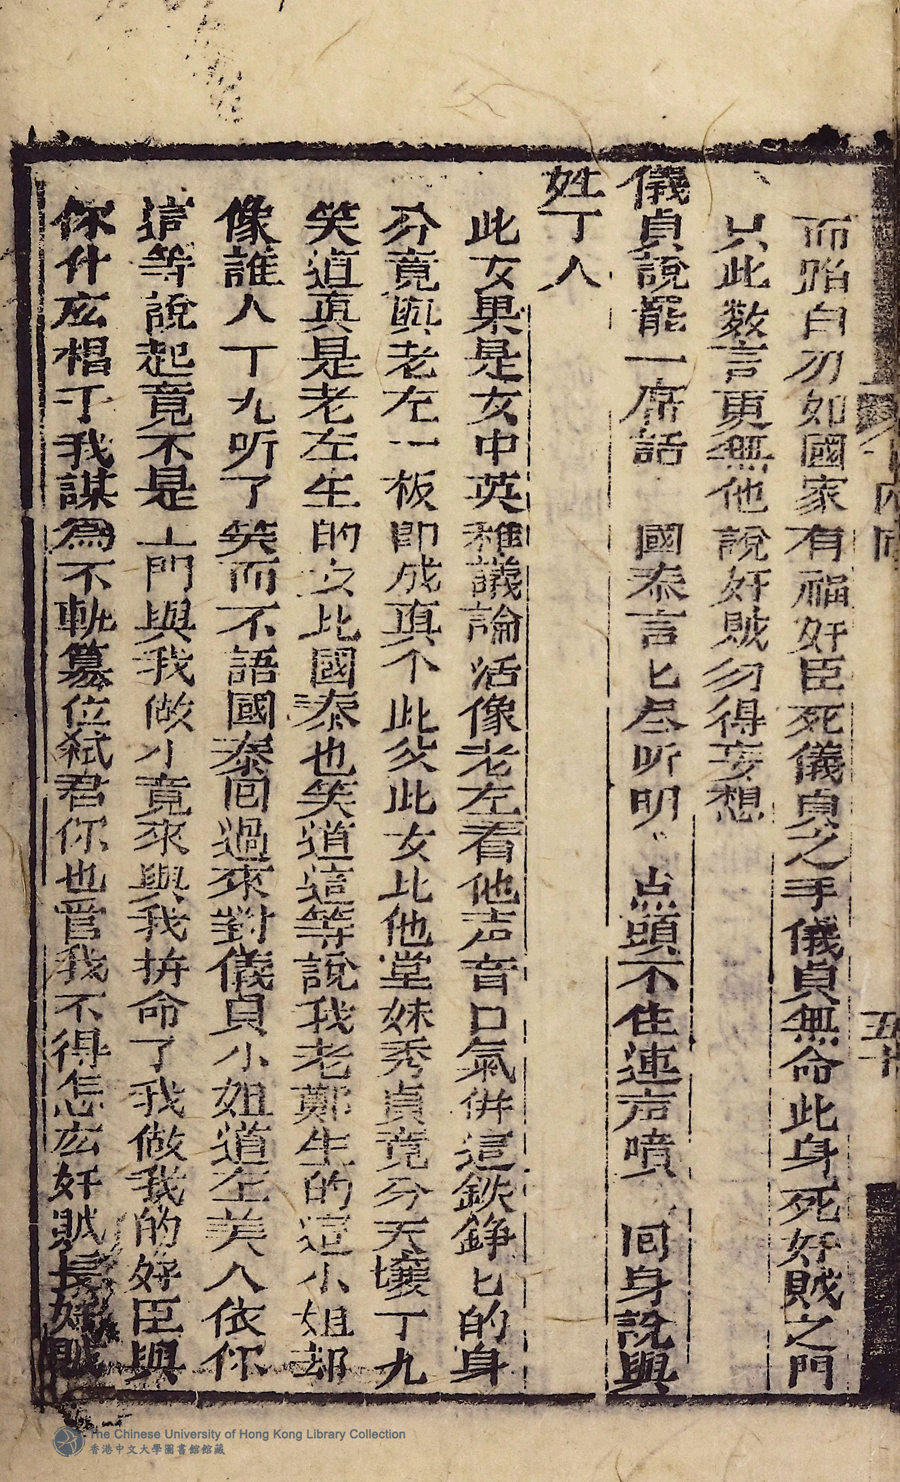 而貽白刃如國家有福奸臣死儀貞之手儀貞無命此身死奸賊之門
只此数言更無他說奸賊勿得妄想
儀貞說罷一席話 國泰言匕尽听明 点頭不住連声噴 囘身說與
姓丁人
此女果是女中英雄議論活像老左看他声音口氣併這鉄錚匕的身
分竟與老左一板即成真个此父此女比他堂妹秀貞竟分天壤丁九
笑道真是老左生的女比國泰也笑道這等說我老鄭生的這小姐却
像誰人丁九听了笑而不語國泰囘過來對儀貞小姐道左美人依你
這等說起竟不是上門與我做小竟來與我拚命了我做我的好臣與
你什広相干我謀為不軌篡位弑君你也管我不得怎広奸賊長奸賊
五十
The Chinese University of Hong Kong Library Collection
香港中文大學圖書館館藏